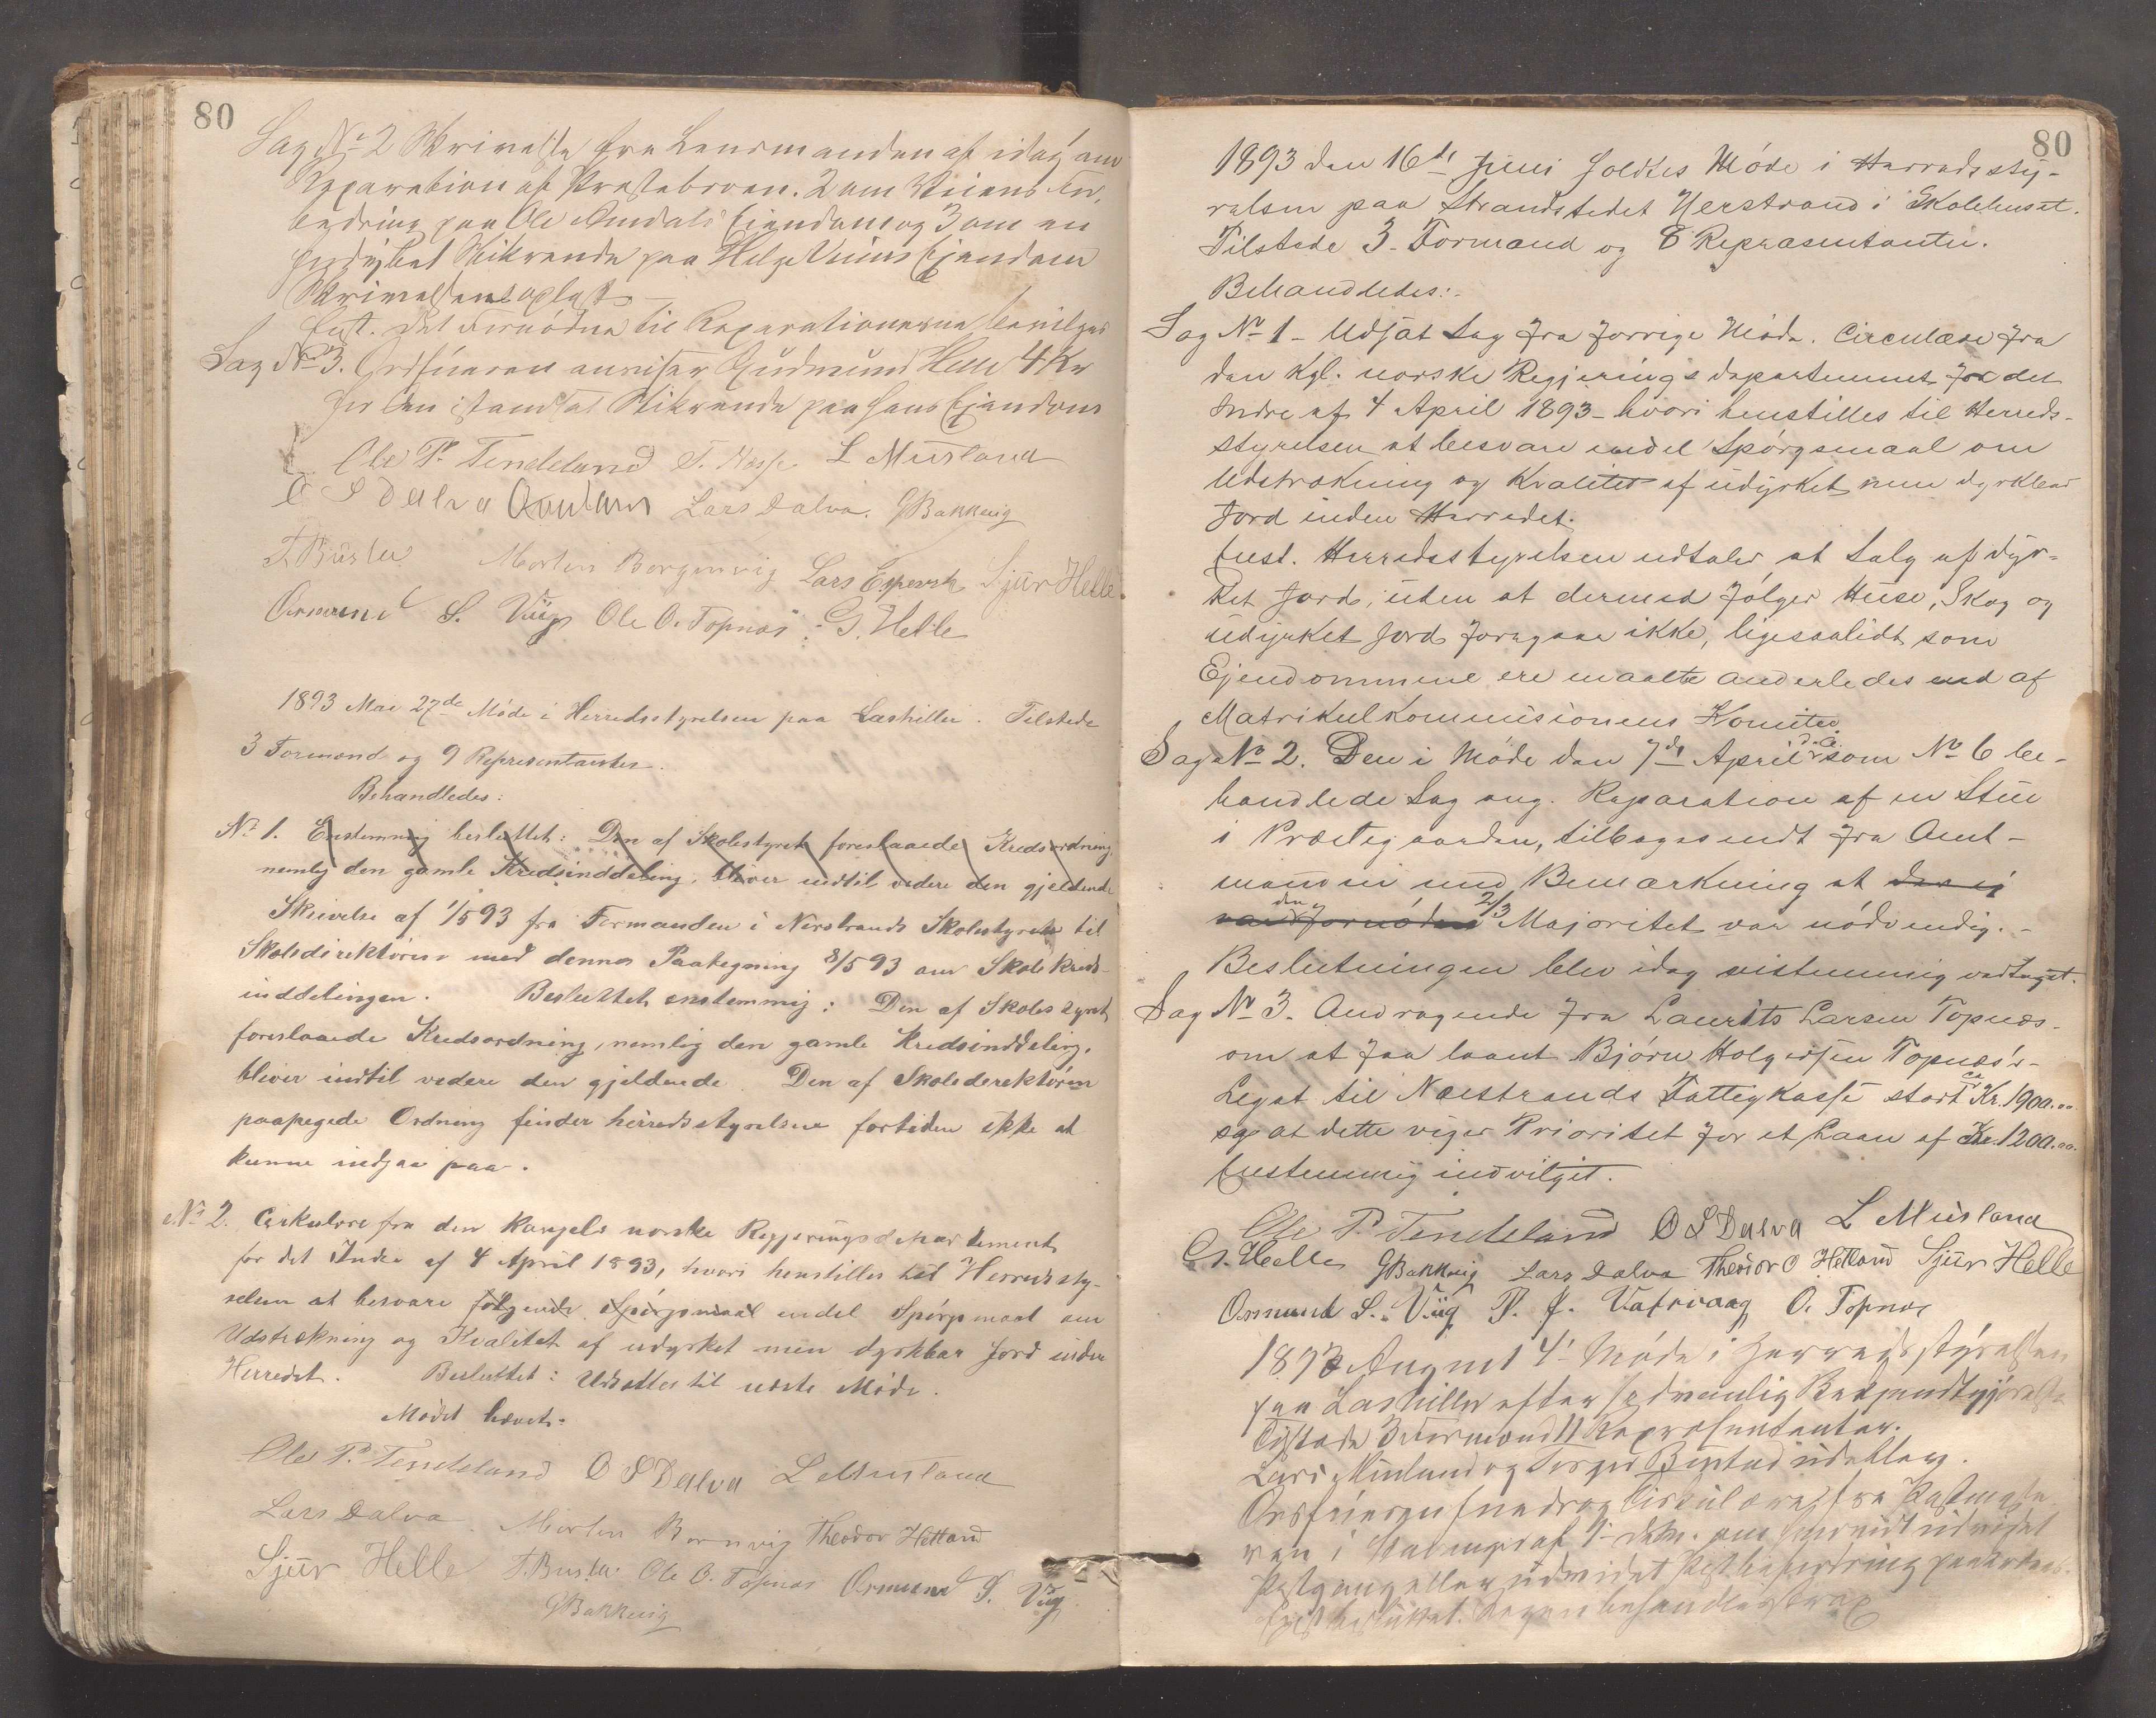 80
Sag No 2 Skrivelse fra Lensmanden af idag om
Reparation af Præstebroen. 2 om Veiens
bedring paa Ole Amdals Eiendom og 3 om en
Stikrende paa Helge Viigs Ejendom
Skrivelsen oplæst
Enst. Det Fornödne til Reparationerne bevilges
Sag No 3. Ordföreren anviser Gudmund Helle 4 Kr
for en istandsat Stikrende paa hans Ejendom
Ole P. Tendeland T. Næsse L Musland
O S Dalva Lars Dalva. G Bakkevig
T. Bustu Morten Borgenvig Lars Espevik Sjur Helle
Osmund S. Viig Ole O. Topnæs G. Helle
1893 Mai 27de Möde i Herredsstyrelsen paa Lashiller. Tilstede
3 Formænd og 9 Repræsentanter.
Behandledes:
No 1. Enstemmig besluttet: Den af Skolestyret foreslaaede Kredsordning,
nemlig den gamle Kredsinddeling, bliver indtil videre den gjeldende
Skrivelse af 1/5 93 fra Formanden i Nerstrands Skolestyrelse til
Skoledirektören med dennes Paategning 8/5 93 om Skolekreds-
inddelingen. Besluttet enstemmig: Den af Skolestyret
foreslaaede Kredsordning, nemlig den gamle Kredsinddeling,
bliver indtil videre den gjeldende. Den af Skoledirektören
paapegede Ordning finder herredsstyrelsen fortiden ikke at
kunne indgaa paa.
No 2. Cirkulære fra den Kongele norske Regjeringsdepartement
for det Indre af 4 April 1893, hvori henstilles til Herredssty-
relsen at besvare følgende Spörgsmaal endel Spörgsmaal om
Udstrækning og Kvalitet af udyrket men dyrkbar Jord inden
Herredet. Besluttet: Udsættes til næste Möde.
Mödet hævet.
Ole P. Tendeland O S Dalva L Musland
Lars Dalva. Morten Borgenvig Theodor Hetland
Sjur Helle T. Bustu Ole O. Topnæs Osmund S. Viig
G Bakkevig
80
1893 den 16de Juni holdtes Möde i Herredssty-
relsen paa Strandstedet Nerstrand i Skolehuset.
Tilstede 3 Formænd og 8 Repræsentanter.
Behandledes:
Sag No 1 - Udsat Sag fra forrige Möde. Circulære fra
den Kgl. norske Regjerings departement for det
Indre af 4 April 1893 - hvori henstilles til Herreds-
styrelsen at besvare endel Spörgsmaal om
Udstrækning og Kvalitet af udyrket men dyrkbar
Jord inden Herredet.
Enst. Herredsstyrelsen udtaler at Salg af dyr-
ket Jord, uden at dermed fölger Huse, Skog og
udyrket Jord foregaar ikke, ligesaalidt som
Ejendommene ere maalte anderledes end af
Matrikulkommisionens Komitee
Sag No 2. Den i Möde den 7de April d. A. som No 6 be-
handlede Sag ang. Reparation af en Stue
i Præstegaarden, tilbagesendt fra Amt-
manden med Bemærkning at der ei
var fornöden den 2/3 Majoritet var nödvendig. -
Beslutningen blev idag enstemmig vedtaget.
Sag No 3. Andragende fra Laurits Larsen Topnæs -
om at faa laant Björn Holgersen Topnæs's -
Legat til Nærstrands Fattigkasse stort ca Kr. 1900.00
og at dette viger Prioritet for et Laan af Kr. 1200.00.
Enstemmig indvilget.
Ole P. Tendeland O S Dalva L Musland
G. Helle G Bakkevig Lars Dalva Theodor O Hetland Sjur Helle
Osmund S. Viig P. J. Vatsvaag O. Topnæs
1893 August 4de Möde i Herredsstyrelsen
paa Lashiller efter sedvanlig Bekjendtgjörelse
Tilstede 3 Formænd 11 Repræsentanter.
Lars Musland og Torger Bustad udeblev.
Ordföreren foredrog Cirkulære fra Postmeste
ren i Stavanger af 1ste dds. om udvidet
Postgang eller udvidet Postbefordring